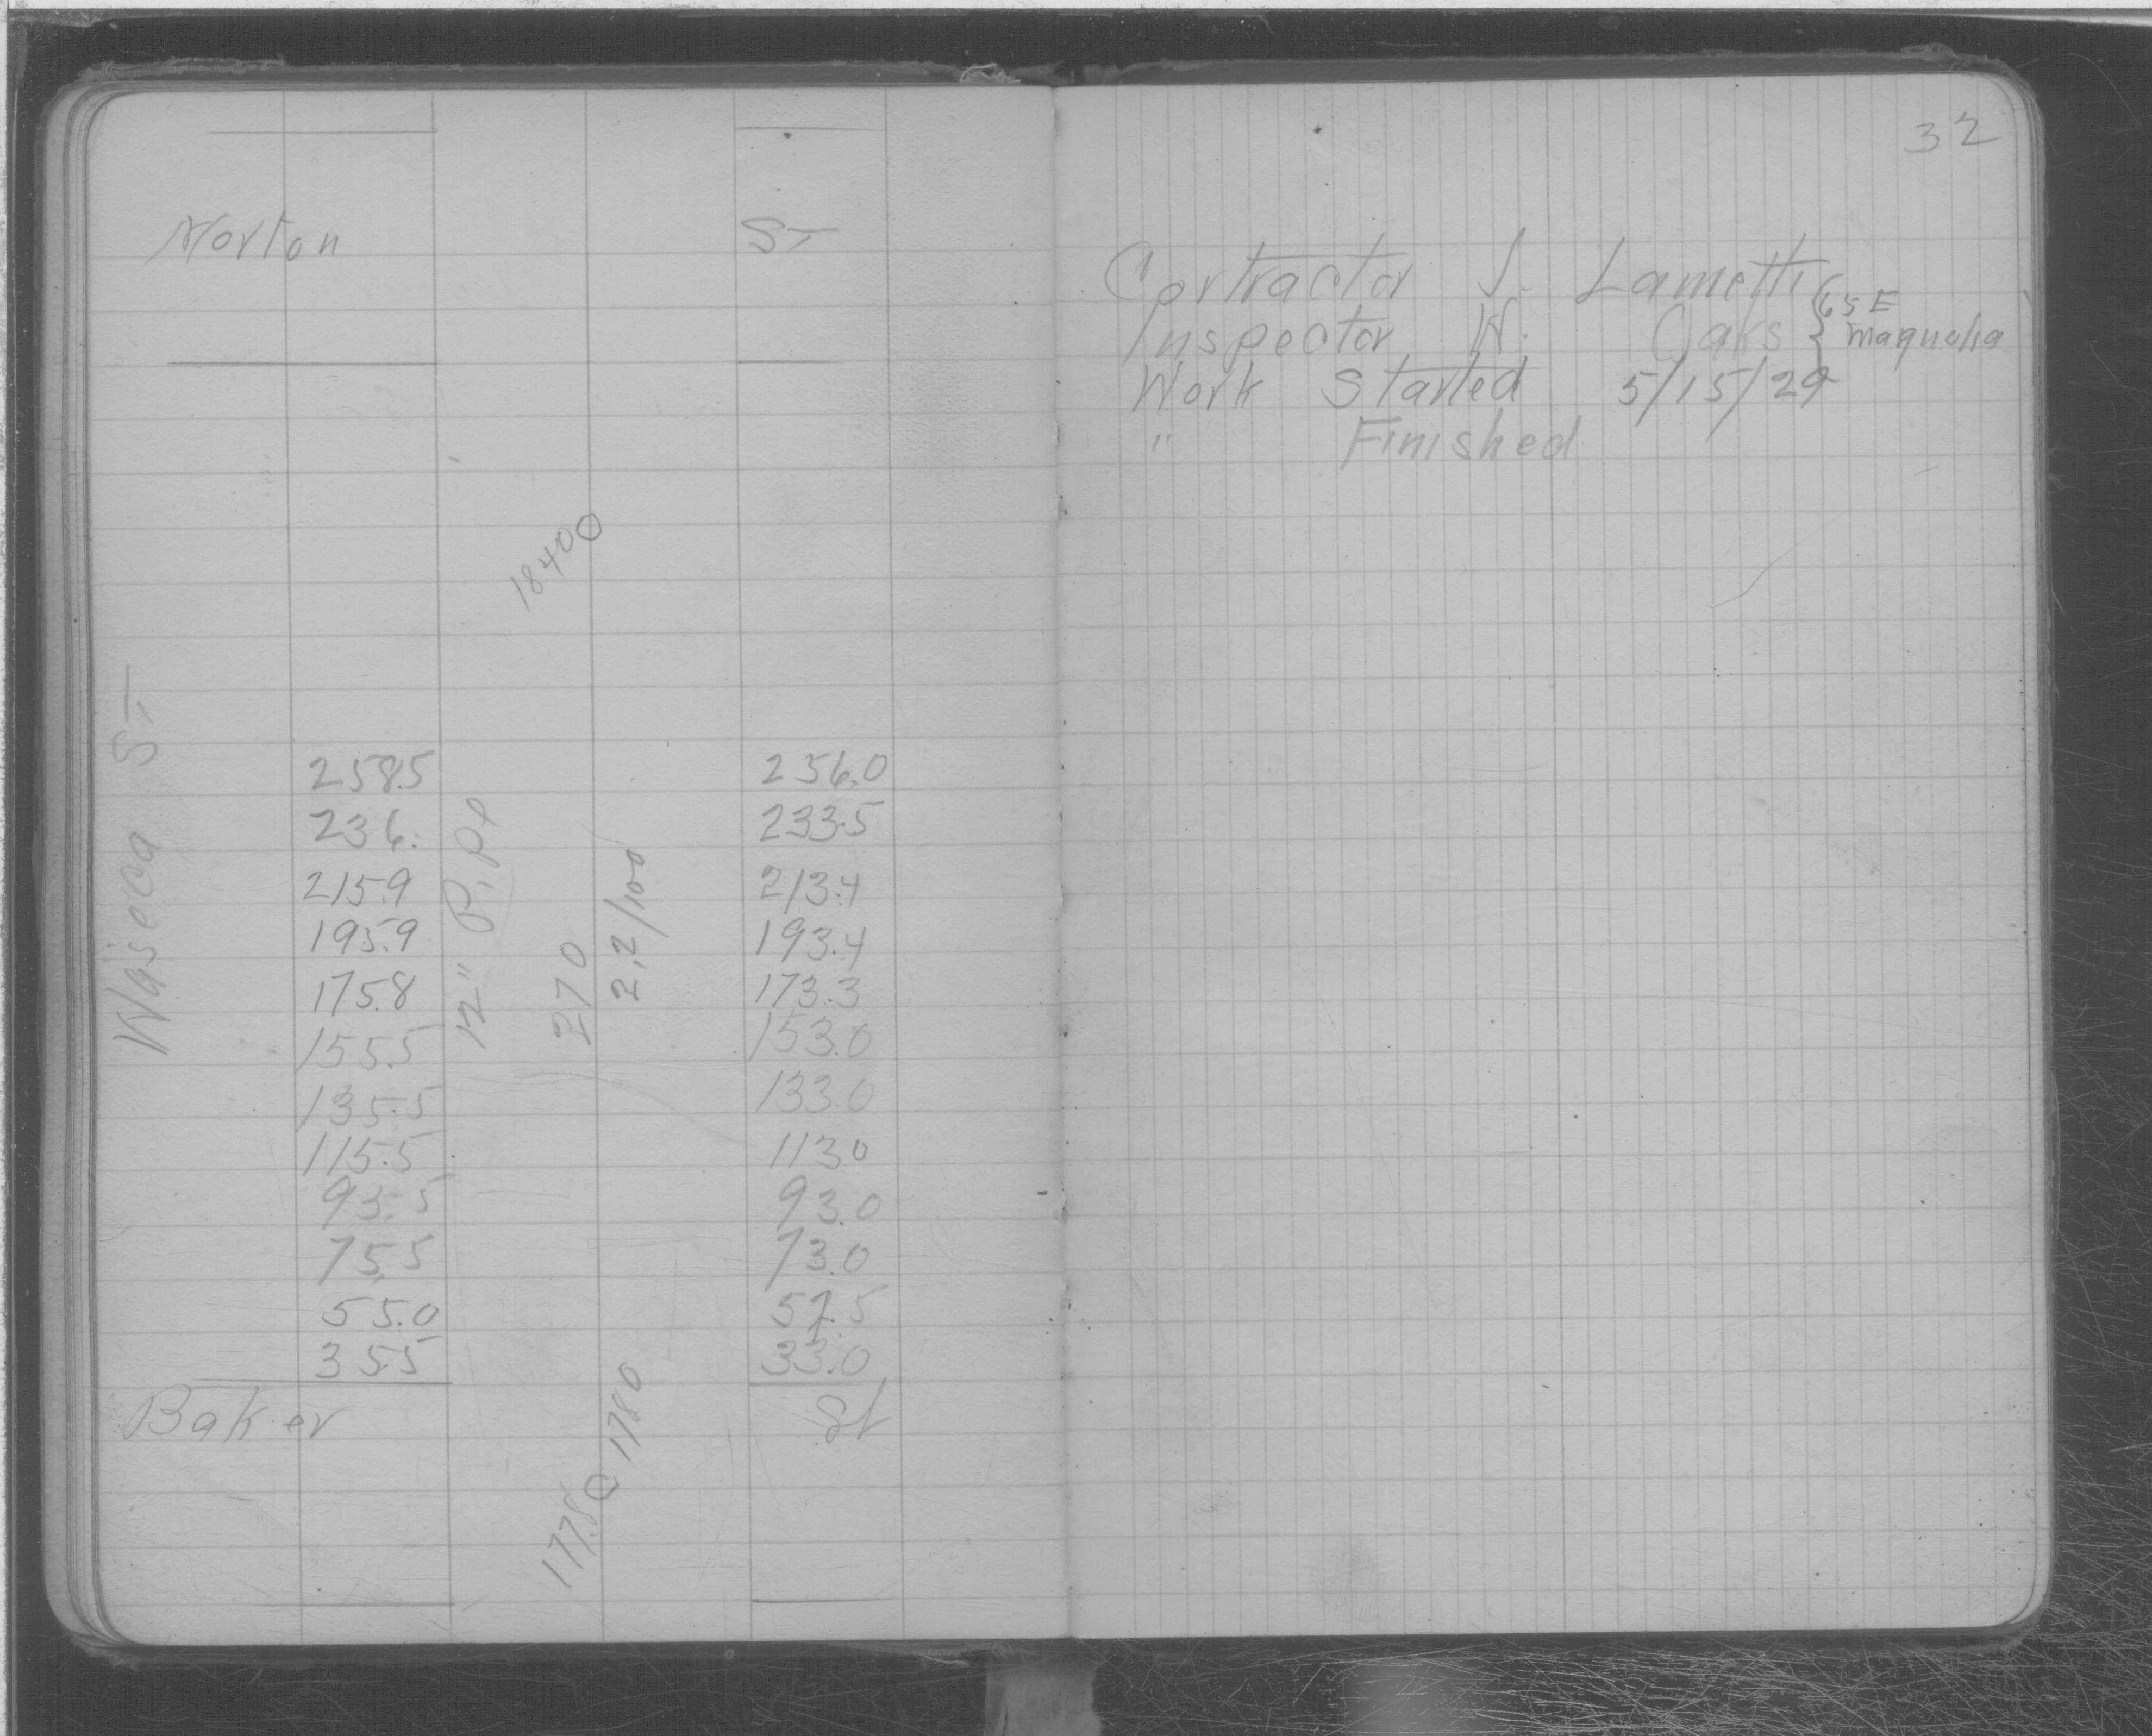 32
Norton St
18400
Waseca St
258.5 256.0
236. 233.5
215.9 213.4
195.9 193.4
175.8 173.3
155.5 153.0
135.5 133.0
115.5 113.0
93.5 93.0
75.5 73.0
55.0 57.5
35.5 33.0
12" Pipe
270
2.2/100
Baker St
1780
177.8
Contractor J. Lametti
Inspector W. Oaks { 65 E Magnolia
Work Started 5/15/29
" Finished